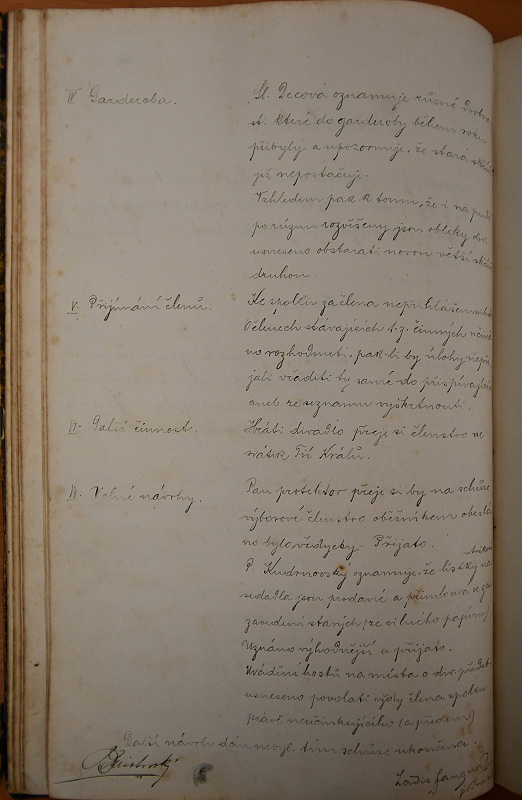 IV Garderoba.
Sl. Decová oznamuje různé drobno
sti které do garderoby během roku
přibyly a upozornuje, že stará skříň
již nepostačuje.
Vzhledem pak k tomu, že i na
po různu rozvěšeny jsou obleky div.
usneseno obstarati novou větší skříň
druhou.
V. Přijímání členů.
Ke spolku za člena nepřihlášen nikdo
O členech stávajících t. z. činných učině
no rozhodnutí, pak-li by úlohy nepři
jali vřaditi ty samé do přispívajících
aneb ze seznamu vyškrtnouti.
VI. Další činnost.
Hráti divadlo přeje si členstvo ve
svátek Tří Králů.
IV. Volné návrhy.
Pan protektor přeje si by na schůze
výborové členstvo oběžníkem obeslá
no bylo vždycky. Přijato.
P. Kudrnovský oznamuje, že lístky na
sedadla jsou prodané a přimlouvá se za
zavedení starých (ze silného papíru)
Uznáno výhodnější a přijato.
Uvádění hostů na místa o div. předst.
usneseno povolati vždy člena spolku
právě neúčinkujícího (a předem)
Další návrh dán nebyl, tím schůze ukončena.
Ladis.